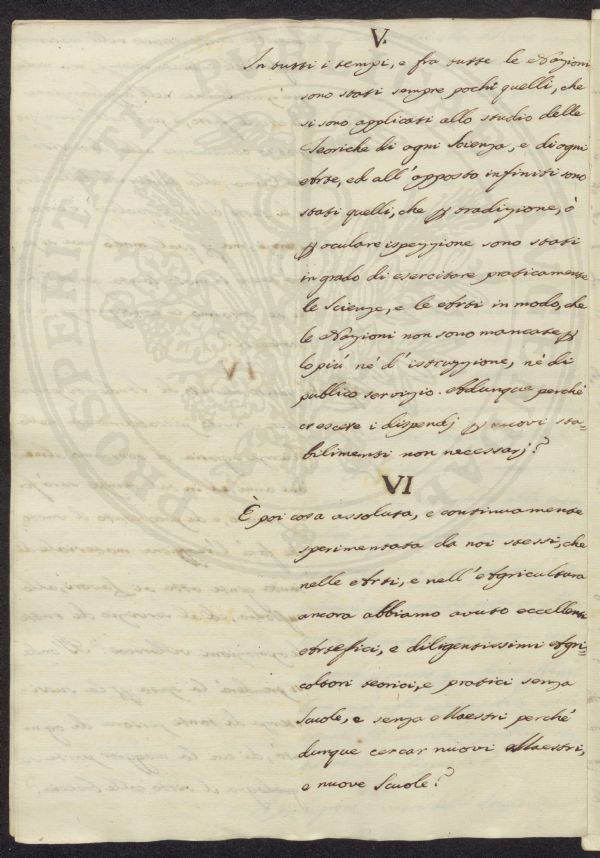 V.
In tutti i tempi, e fra tutte le Nazioni
sono stati sempre pochi quelli, che
si sono applicati allo studio delle
Teoriche di ogni Scienza, e di ogni
Arte, ed all'apposto infiniti sono
stati quelli, che ꝑ tradizione, ò
ꝑ oculare ispezzione sono stati
in grado di esercitare praticamente
le Scienze, e le Arti in modo, che
le Nazioni non sono mancate ꝑ
lo più né d'istruzzione, né di
publico servizio. Adunque perché
crescere i dispendj ꝑ nuovi sta-
bilimenti non necessarj?
VI
È poi cosa assoluta, e continuamente
sperimentata da noi stessi, che
nelle Arti, e nell'Agricultura
ancora abbiamo avuto eccellenti
Artefici, e diligentissimi Agri-
coltori teorici, e pratici senza
Scuole, e senza Maestri perché
dunque cercar nuovi Maestri,
e nuove Scuole?
PROSPERITATI PUBLICAE